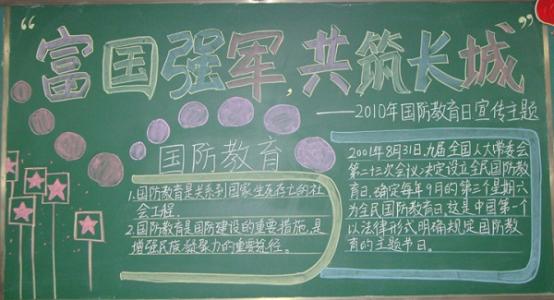 “富国强军,共筑长城”
——2010年国防教育日宣传主题
国防教育
1.国防教育是关系到国家生死存亡的社
会工程.
2.国防教育是国防建设的重要措施,是
增强民族凝聚力的重要途径。
2001年8月31日,九届全国人大常委会
第二十三次会议决定设立全民国防教
育日.确定每年9月的第三个星期六
为全民国防教育日.这是中国第一个
以法律形式明确规定国防教
育的主题节日。